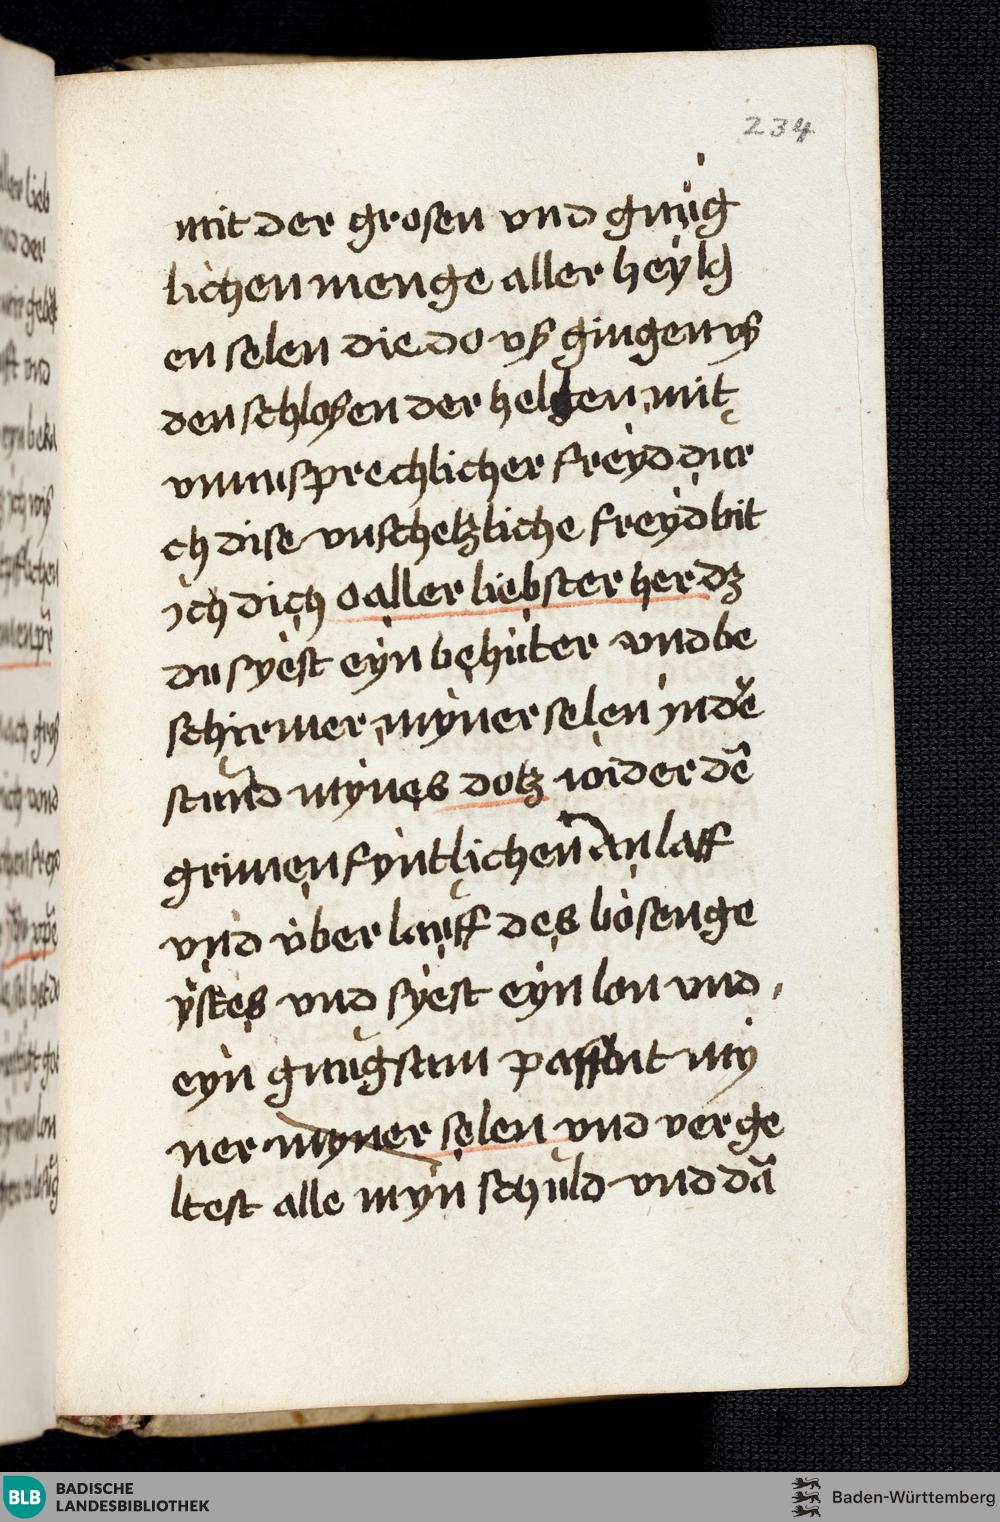 234
mit der grosen vnd gnu̇g
lichen menge aller heylg
en selen die do vß gingen vß
den schlosen der hellen mit
vnnusprechlicher freyd dur
ch dise vnschetzliche freyd bit
ich dich o aller liebster her dz
du syest eyn behu̇ter vnd be
schirmer myner selen in dē
stund mynes dotz wider dē
grimen fyntlichen Anlaff
vnd u̇ber lauff des bo̍senge
ystes vnd syest eyn lon vnd
eyn gnugsam passhnt my
ner myner selen vnd verge
ltest alle myn schuld vnd dā
BLB
BADISCHE
LANDESBIBLIOTHEK
Baden-Württemberg